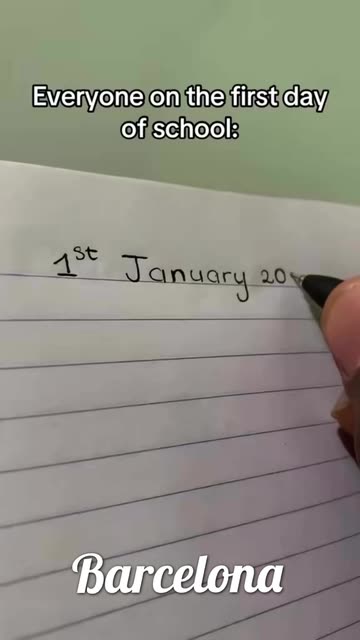 Everyone on the first day
of school:
1st January 20
Barcelona